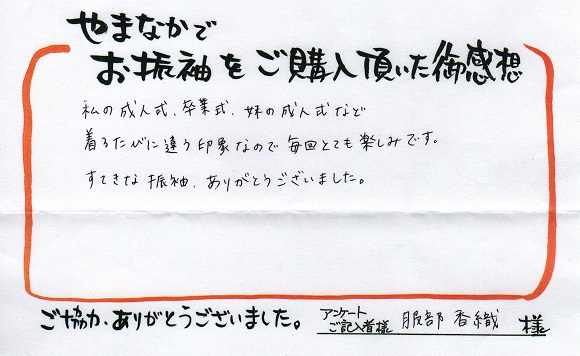 やまなかで
お振袖をご購入頂いた御感想
私の成人式、卒業式、妹の成人式など
着るたびに違う印象なので毎回とても楽しみです。
すてきな振袖、ありがとうございました。
ご協力、ありがとうございました。
アンケート
ご記入者様 服部 香織 様